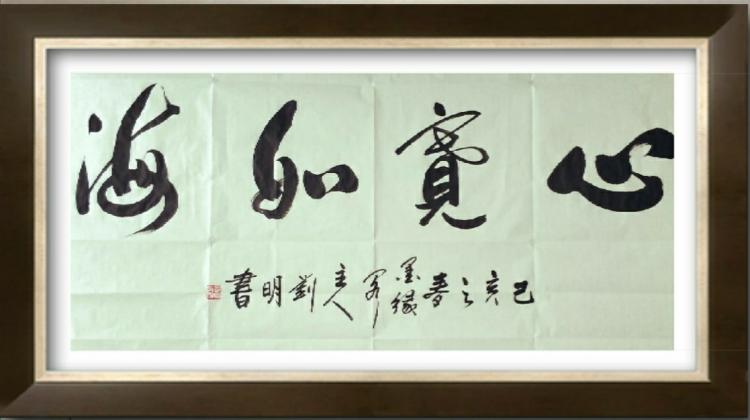 心寬如海
己亥之春墨緣閣主人劉明書